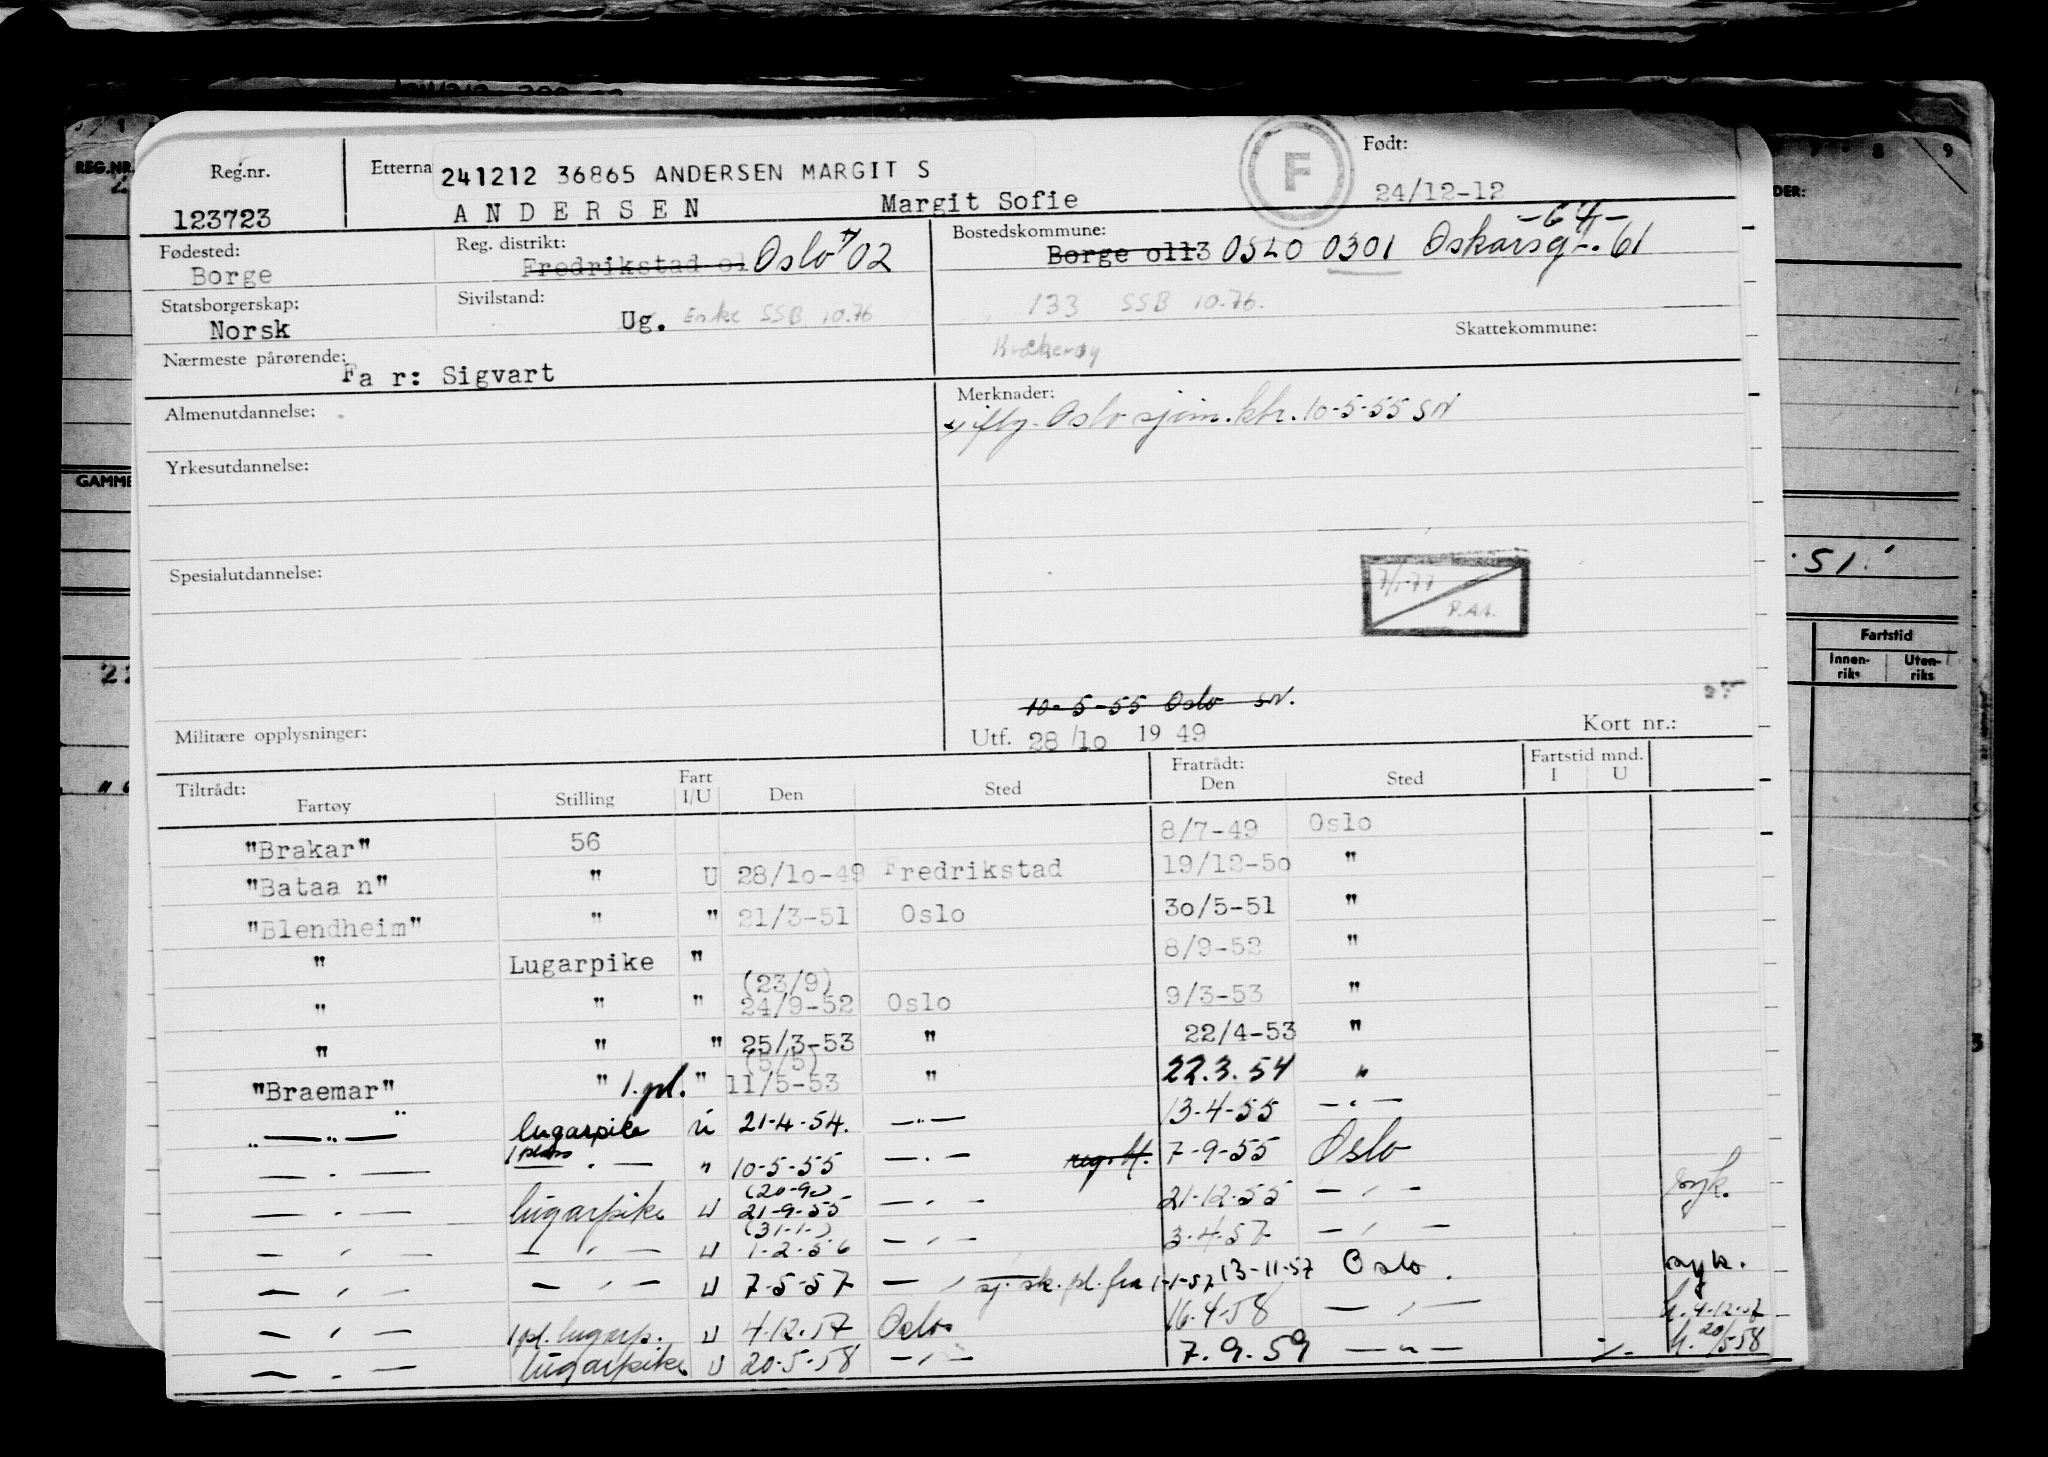 Reg.nr.
123723
Etterna
241212 36865 ANDERSEN MARGIT S
A N D E R S E N Margit Sofie
F
Født:
24/12-12
Fødested:
Borge
Reg. distrikt:
Fredrikstad o1 Oslo 02
Bostedskommune:
Borge o113 OSLO 0301 Oskarsg -64- 61
Statsborgerskap:
Norsk
Sivilstand:
Ug. Enke SSB 10.76
133 SSB 10.76.
Kråkerøy
Skattekommune:
Nærmeste pårørende:
Fa r: Sigvart
Almenutdannelse:
Merknader:
x) iflg. Oslo sjøm.ktr. 10-5-55 SN
Yrkesutdannelse:
Spesialutdannelse:
7/1-77
P.AA.
Militære opplysninger:
10-5-55 Oslo SN.
Utf. 28/1o 19 49
Kort nr.:
Tiltrådt:
Fartøy Stilling Fart I/U Den Sted Fratrådt: Den Sted Fartstid mnd. I U
"Brakar" 56 8/7-49 Oslo
"Bataa n" " U 28/1o-49 Fredrikstad 19/12-5o "
"Blendheim" " " 21/3-51 Oslo 3o/5-51 "
" Lugarpike " 8/9-52 "
(23/9)
" " " 24/9-52 Oslo 9/3-53 "
" " " 25/3-53 " 22/4-53 "
(5/5)
"Braemar" " 1.pl. " 11/5-53 " 22.3.54 "
" — " — lugarpike U 21-4-54. — " — 13-4-55 — " —
1 plass
— " — — " — " 10-5-55 — " — 7-9-55 Oslo
(20-9)
— " — lugarpike U 21-9-55 — " — 21-12-55 — " — syk.
(31-1-)
— " — — " — U 1-2-56 — " — 3-4-57 — " —
— " — — " — U 7-5-57 — " — sj. sk. pl. fra 1-1-57 13-11-57 Oslo. syk.
— " — 1 pl. lugarp. U 4-12-57 Oslo 16-4-58 — " — h. 4-12-57
— " — lugarpike U 20-5-58 — " — 7.9.59 — " — h. 20/5 58
REG.NR.
GAMME
22
DER:
7 8 9
51
Fartstid
Innen-riks Uten-riks